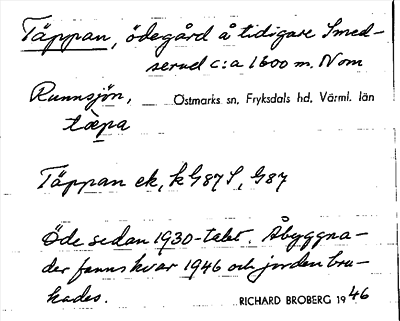 Täppan, ödegård å tidigare Smed-
serud c:a 1600 m. N om
Runnsjön, Östmarks sn, Fryksdals hd, Värml. län
tæpa
Täppan ek, k G87 S, G87
Öde sedan 1930-talet. Åbyggna-
der fanns kvar 1946 och jorden bru-
kades.
RICHARD BROBERG 1946